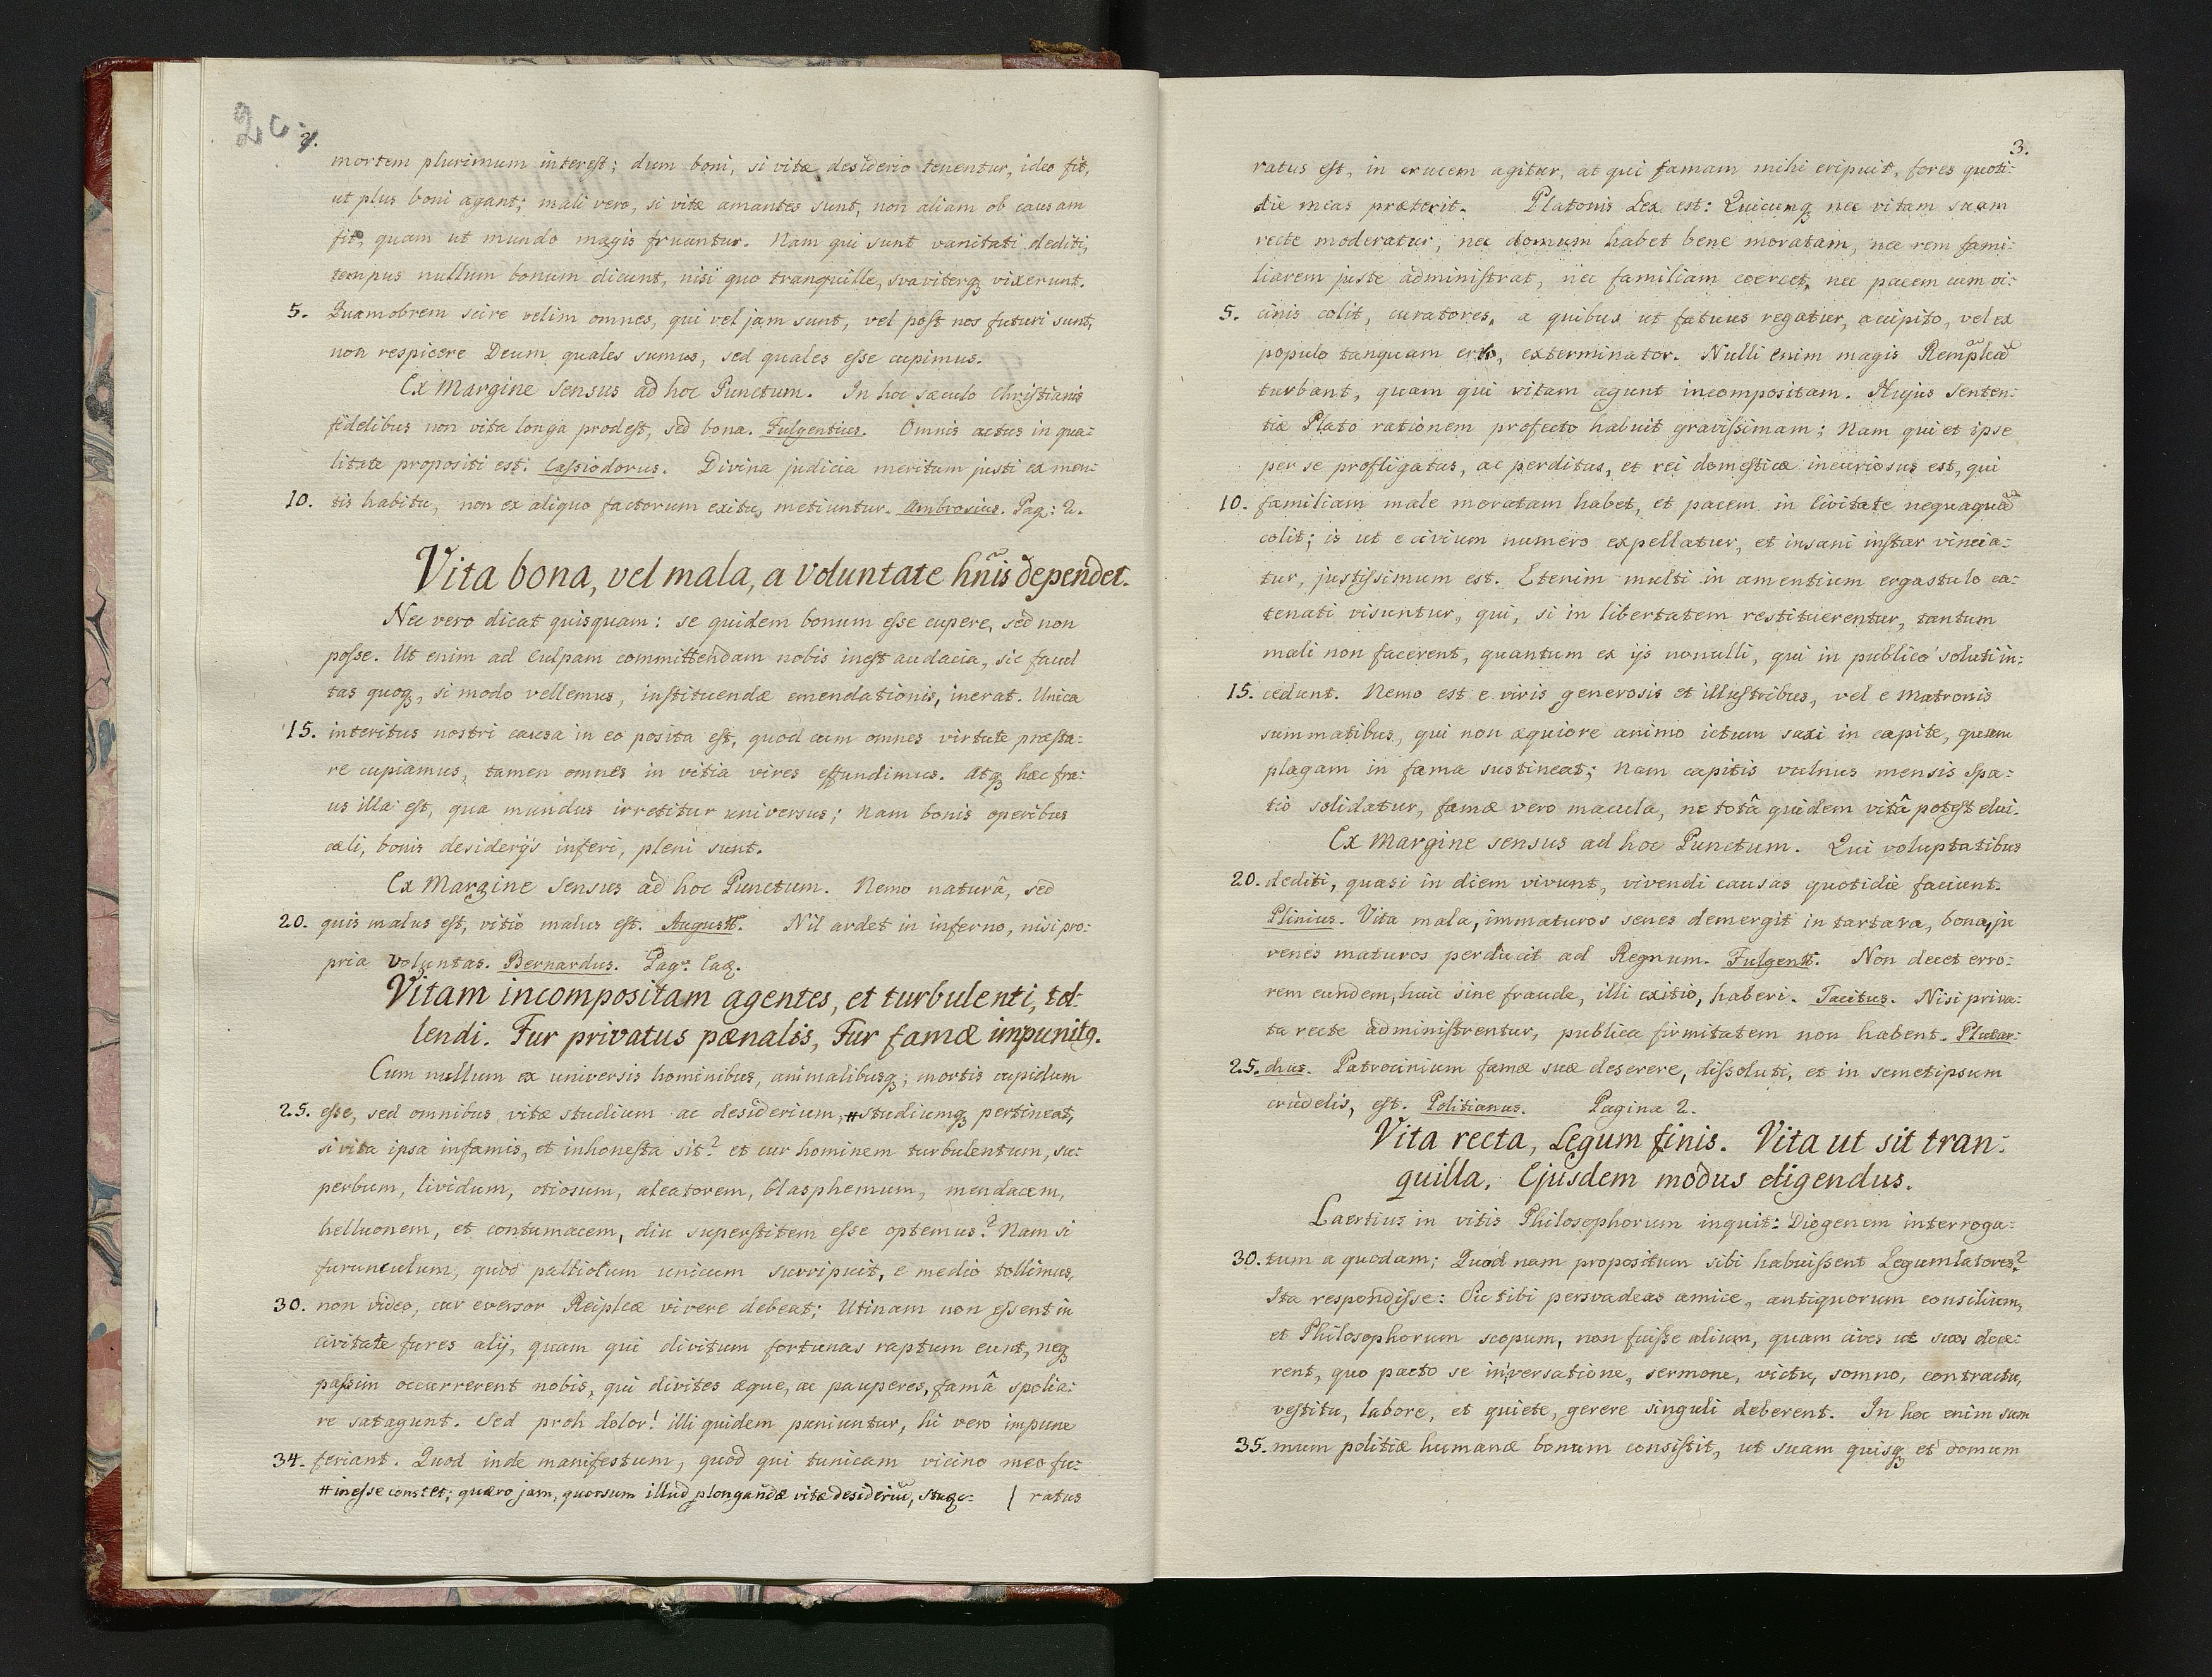 2.
mortem plurimum interest; dum boni, si vitæ desiderio tenentur, ideo fit,
ut plus boni agant; mali vero, si vitæ amantes sunt, non aliam ob causam
fit, quam ut mundo magis fruantur. Nam qui sunt vanitati dediti,
tempus nullum bonum dicunt, nisi quo tranquille, svaviterq₃ vixerunt.
5. Quamobrem scire velim omnes, qui vel jam sunt, vel post nos futuri sunt,
non respicere Deum quales sumus, sed quales esse cupimus.
Ex Margine sensus ad hoc Punctum. In hoc sæculo Christianis
fidelibus non vita longa prodest, sed bona. Fulgentius. Omnis actus in qua:
litate propositi est: Cassiodorus. Divina judicia meritum justi ex men:
10. tis habitu, non ex aliquo factorum exitu, metiuntur. Ambrosius. Pag: 2.
Vita bona, vel mala, a voluntate hñis dependet.
Nec vero dicat quisquam: se quidem bonum esse cupere, sed non
posse. Ut enim ad Culpam committendam nobis inest audacia, sic facul
tas quoq₃, si modo vellemus, instituendæ emendationis, inerat. Unica
15. interitus nostri causa in eo posita est, quod cum omnes virtute præsta:
re cupiamus, tamen omnes in vitia vires effundimus. Atq₃ hæc fra:
us illa est, qua mundus irretitur universus; Nam bonis operibus
cæli, bonis desiderijs inferi, pleni sunt.
Ex Margine sensus ad hoc Punctum. Nemo naturâ, sed
20. quis malus est, vitio malus est. August. Nil ardet in inferno, nisi pro:
pria voluntas. Bernardus. Pag. Eaq.
Vitam incompositam agentes, et turbulenti, tol:
lendi. Fur privatus pænalis, Fur famæ impunitg.
Cum nullum ex universis hominibus, animalibusq₃; mortis cupidum
25. esse, sed omnibus vitæ studium ac desiderium, # studiumq₃ pertineat,
si vita ipsa infamis, et inhonesta sit? et cur hominem turbulentum, su:
perbum, lividum, otiosum, aleatorem, blasphemum, mendacem,
helluonem, et contumacem, diu superstitem esse optemus? Nam si
furunculum, quod palliolum unicum surripuit, e medio tollimus,
30. non video, cur eversor Reiplcæ vivere debeat; Utinam non essent in
civitate fures alij, quam qui divitum fortunas raptum eunt, neq₃
passim occurrerent nobis, qui divites æque, ac pauperes, famâ spolia:
re satagunt. Sed proh dolor! illi quidem puniuntur, hi vero impune
34. feriant. Quod inde manifestum, quod qui tunicam vicino meo fu:
# inesse constet; quæro jam, quorsum illud plongandæ vitæ desideriũ, | ratus
3.
ratus est, in crucem agitur, at qui famam mihi eripuit, fores quoti:
die meas præterit. Platonis Lex est: Quicumq₃ nec vitam suam
recte moderatur, nec domum habet bene moratam, nec rem fami:
liarem juste administrat, nec familiam coercet, nec pacem cum vi:
5. cinis colit, curatores, a quibus ut fatuus regatur, accipito, vel ex
populo tanquam exterminator. Nulli enim magis Rempleã
turbant, quam qui vitam agunt incompositam. Hujus Senten:
tiæ Plato rationem profecto habuit gravissimam; Nam qui et ipse
per se profligatus, ac perditus, et rei domesticæ incuriosus est, qui
10. familiam male moratam habet, et pacem in Civitate nequaquã
colit; is ut e civium numero expellatur, et insani instar vincia:
tur, justissimum est. Etenim multi in amentium ergastulo ca:
tenati visuntur, qui, si in libertatem restituerentur, tantum
mali non facerent, quantum ex ijs nonulli, qui in publico soluti in:
15. cedunt. Nemo est e viris generosis et illustribus, vel e Matronis
summatibus, qui non æquiore animo ictum saxi in capite, quam
plagam in fama sustineat; Nam capitis vulnus mensis spa:
tio solidatur, famæ vero macula, ne totâ quidem vitâ potest elui.
Ex Margine sensus ad hoc Punctum. Qui voluptatibus
20. dediti, quasi in diem vivunt, vivendi causas quotidie faciunt.
Plinius. Vita mala, immaturos senes demergit in tartara, bona, ju
venes maturos perducit ad Regnum. Fulgent. Non decet erro:
rem eundem, huic sine fraude, illi exitio, haberi. Tacitus. Nisi priva:
ta recte administrentur, publica firmitatem non habent. Plutar:
25. chus. Patrocinium famæ suæ deserere, dissoluti, et in semetipsum
crudelis, est. Politianus. Pagina 2.
Vita recta, Legum finis. Vita ut sit tran:
quilla. Ejusdem modus eligendus.
Laertius in vitis Philosophorum inquit: Diogenem interroga:
30. tum a quodam; Quod nam propositum sibi habuissent Legumlatores?
Ita respondisse: Sic tibi persvadeas amice, antiquorum consilium,
et Philosophorum scopum, non fuisse alium, quam cives ut suos doce:
rent, quo pacto se in versatione, sermone, victu, somno, contractu,
vestitu, labore, et quiete, gerere singuli deberent. In hoc enim sum
35. mum politiæ humanæ bonum consistit, ut suam quisq₃ et domum